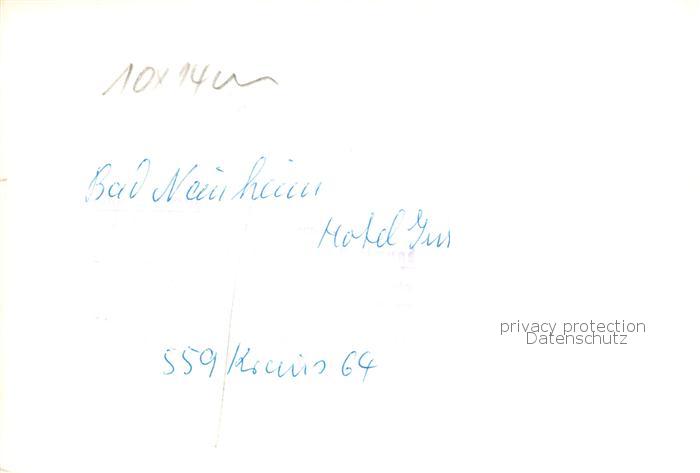 10x14cm
Bad Nauheim
Hotel
559 Krauss 64
privacy protection
Datenschutz